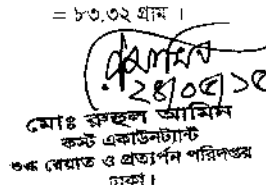 = ৮৩.৩২ গ্রাম ।
২৪/০৫/১৫
মোঃ রুহুল আমিন
কস্ট একাউনট্যান্ট
শুল্ক রেয়াত ও প্রত্যর্পন পরিদপ্তর
ঢাকা।